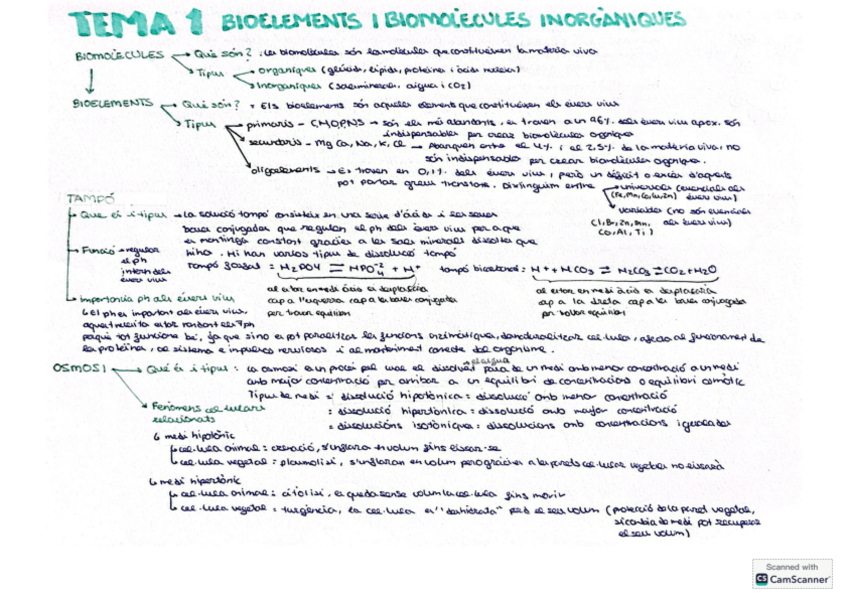 TEMA 1 BIOELEMENTS I BIOMOLÈCULES INORGÀNIQUES
BIOMOLÈCULES → Què són? : Les biomolècules són les molècules que constitueixen la matèria viva
Tipus → orgàniques (glúcids, lípids, proteïnes i àcids nucleics)
inorgàniques (sals minerals, aigua i CO2)
BIOELEMENTS → Què són? → Els bioelements són aquells elements que constitueixen els éssers vius
Tipus → primaris - CHOPNS → són els més abundants, es troven a un 96% dels éssers vius apox. són
indispensables per crear biomolècules orgàniques
secundaris - Mg Ca, Na, K, Cl → Abarquen entre el 4% i el 2,5% de la matèria viva, no
són indispensables per crear biomolècules orgàniques.
oligoelements → Es troven en 0,1% dels éssers vius, però un dèficit o excés d'aquests
pot portar greus trastorns. Distinguim entre → universals (essencials als
(Fe, Mn, Co, Cu, Zn) éssers vius)
variables (no són essencials
(I, Br, Zn, Mn, als éssers vius)
Co, Al, Ti)
TAMPÓ
Què és i tipus → La solució tampó consisteix en una sèrie d'àcids i les seves
bases conjugades que regulen el ph dels éssers vius per a que
es mantingui constant gràcies a les sals minerals dissoltes que
hi ha. Hi han varios tipus de dissolució tampó
Funció → regular
el ph
intern dels
éssers vius
tampó fosfat = H2PO4 ⇌ HPO4-2 + H+ tampó bicarbonat = H+ + HCO3 ⇌ H2CO3 ⇌ CO2 + H2O
al estar en medi àcid es desplaça
cap a l'esquerra cap a les bases conjugades
per trovar equilibri
al estar en medi àcid es desplaça
cap a la dreta cap a les bases conjugades
per trovar equilibri
Importància ph als éssers vius
↳ El ph es important als éssers vius,
aquest necessita estar rondant els 7 ph
perquè tot funcione bé, ja que sino es pot paralitzar les funcions enzimàtiques, desnaturalitzar cel·lules, afecta al funcionament de
les proteïnes, al sistema e impulsos nerviosos i al manteniment correcte del organisme.
OSMOSI → Què és i tipus: La osmosi es un procés pel qual el dissolvent
el aigua
passa de un medi amb menor concentració a un medi
amb major concentració per arribar a un equilibri de concentracions o equilibri osmòtic
Tipus de medi = dissolució hipotònica : dissolució amb menor concentració
: dissolució hipertònica : dissolució amb major concentració
= dissolucions isotòniques : dissolucions amb concentracions igualades
Fenòmens cel·lulars
relacionats
↳ medi hipotònic
↳ cel·lula animal : , s'inflara + volum fins esclatar-se
↳ cel·lula vegetal : plasmolisi, s'inflaran en volum pero gràcies a la paret cel·lular vegetal no esclatarà
↳ medi hipertònic
↳ cel·lula animal : citolisi, es queda sense volum la cel·lula fins morir
↳ cel·lula vegetal : turgència, la cel·lula es "deshidrata" perd el seu volum (protecció de la paret vegetal,
si canvia de medi pot recuperar
el seu volum)
Scanned with
CS CamScanner